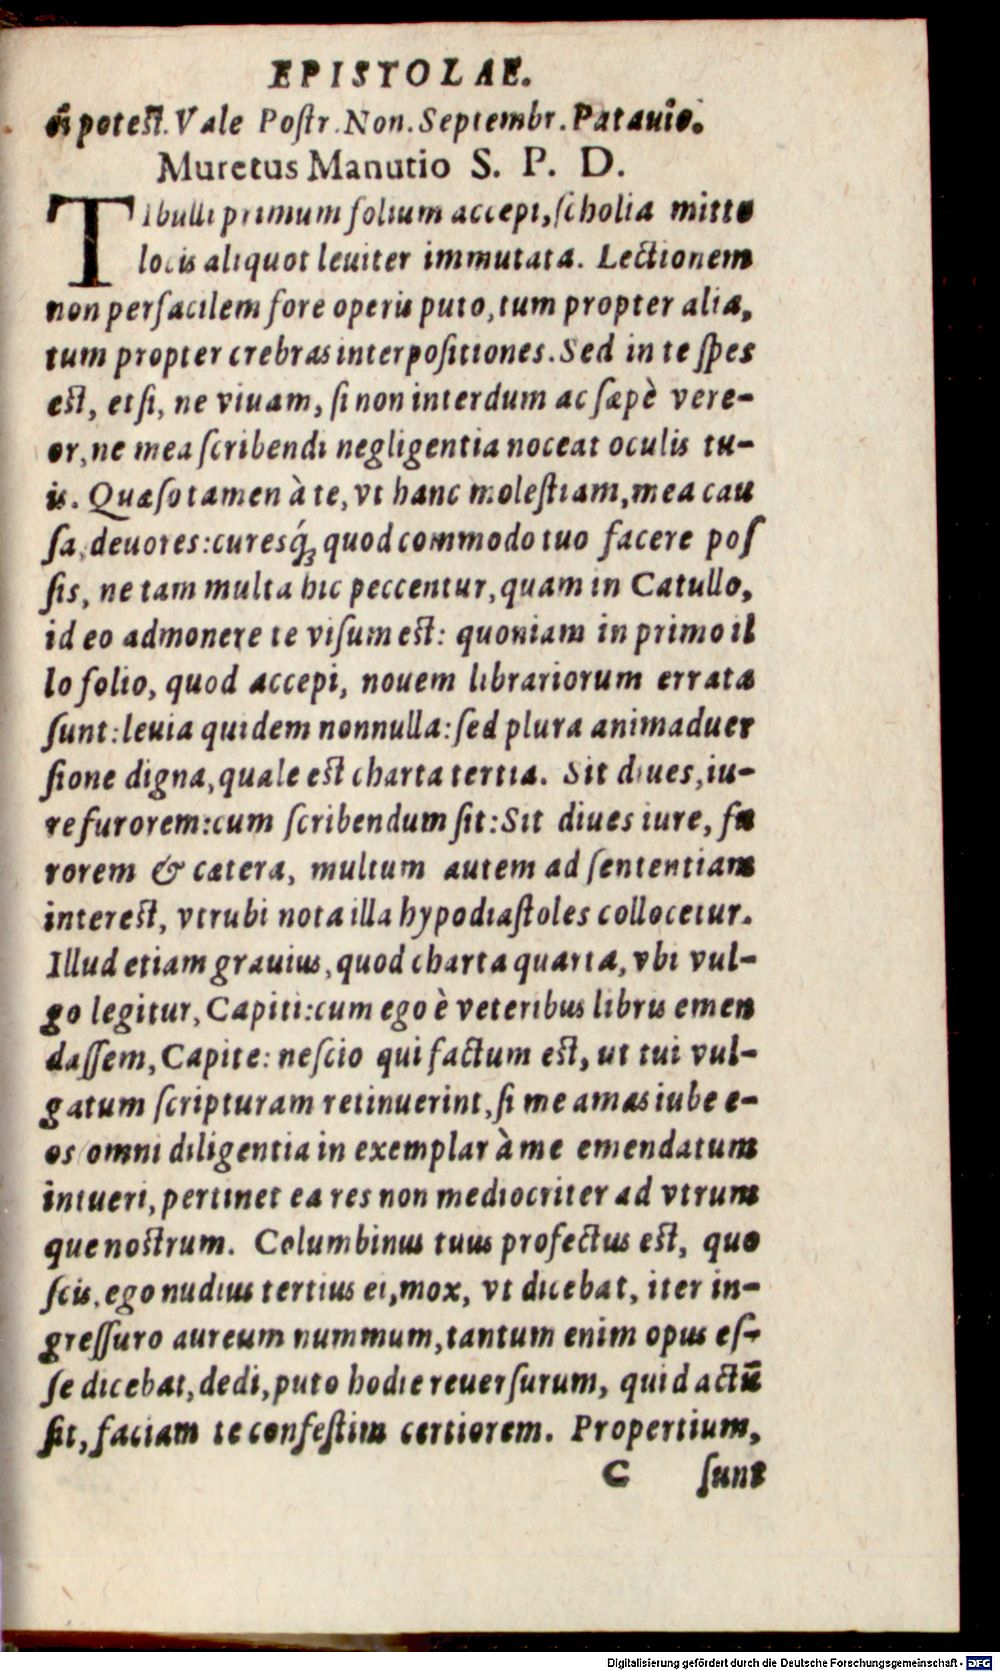 EPISTOLAE.
potest. Vale Postr. Non. Septembr. Patauio.
Muretus Manutio S. P. D.
TIbulli primum folium accepi, ſcholia mitto
locis aliquot leuiter immutata. Lectionem
non perfacilem fore operis puto, tum propter alia,
tum propter crebras interpoſitiones. Sed in te ſpes
est, etſi, ne viuam, ſi non interdum ac ſæpè vere-
or, ne mea ſcribendi negligentia noceat oculis tu-
is. Quæſo tamen à te, vt hanc moleſtiam, mea cau
ſa, deuores: curesq́ꝫ quod commodo tuo facere poſ
ſis, ne tam multa hic peccentur, quam in Catullo,
id eo admonere te viſum est: quoniam in primo il
lo folio, quod accepi, nouem librariorum errata
ſunt: leuia quidem nonnulla: ſed plura animaduer
ſione digna, quale est charta tertia. Sit diues, iu-
re furorem: cum ſcribendum ſit: Sit diues iure, fu
rorem & cætera, multum autem ad ſententiam
interest, vtrubi nota illa hypodiaſtoles collocetur.
Illud etiam grauius, quod charta quarta, vbi vul-
go legitur, Capiti: cum ego è veteribus libris emen
daſſem, Capite: neſcio qui factum est, ut tui vul-
gatum ſcripturam retinuerint, ſi me amas iube e-
os omni diligentia in exemplar à me emendatum
intueri, pertinet ea res non mediocriter ad vtrum
que nostrum. Columbinus tuus profectus est, quo
ſcis, ego nudius tertius ei, mox, vt dicebat, iter in-
greſſuro aureum nummum, tantum enim opus eſ-
ſe dicebat, dedi, puto hodie reuerſurum, quid actū
ſit, faciam te confeſtim certiorem. Propertium,
C ſunt
Digitalisierung gefördert durch die Deutsche Forschungsgemeinschaft - DFG